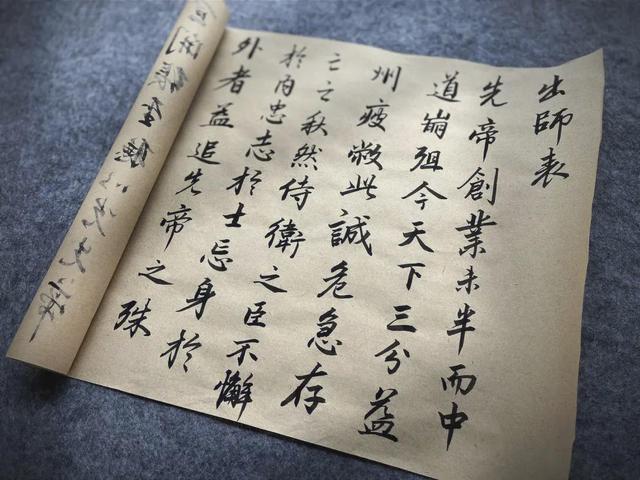 出師表
先帝創業未半而中
道崩殂今天下三分益
州疲敝此誠危急存
亡之秋然侍衛之臣不懈
於内忠志於士忘身於
外者益追先帝之殊